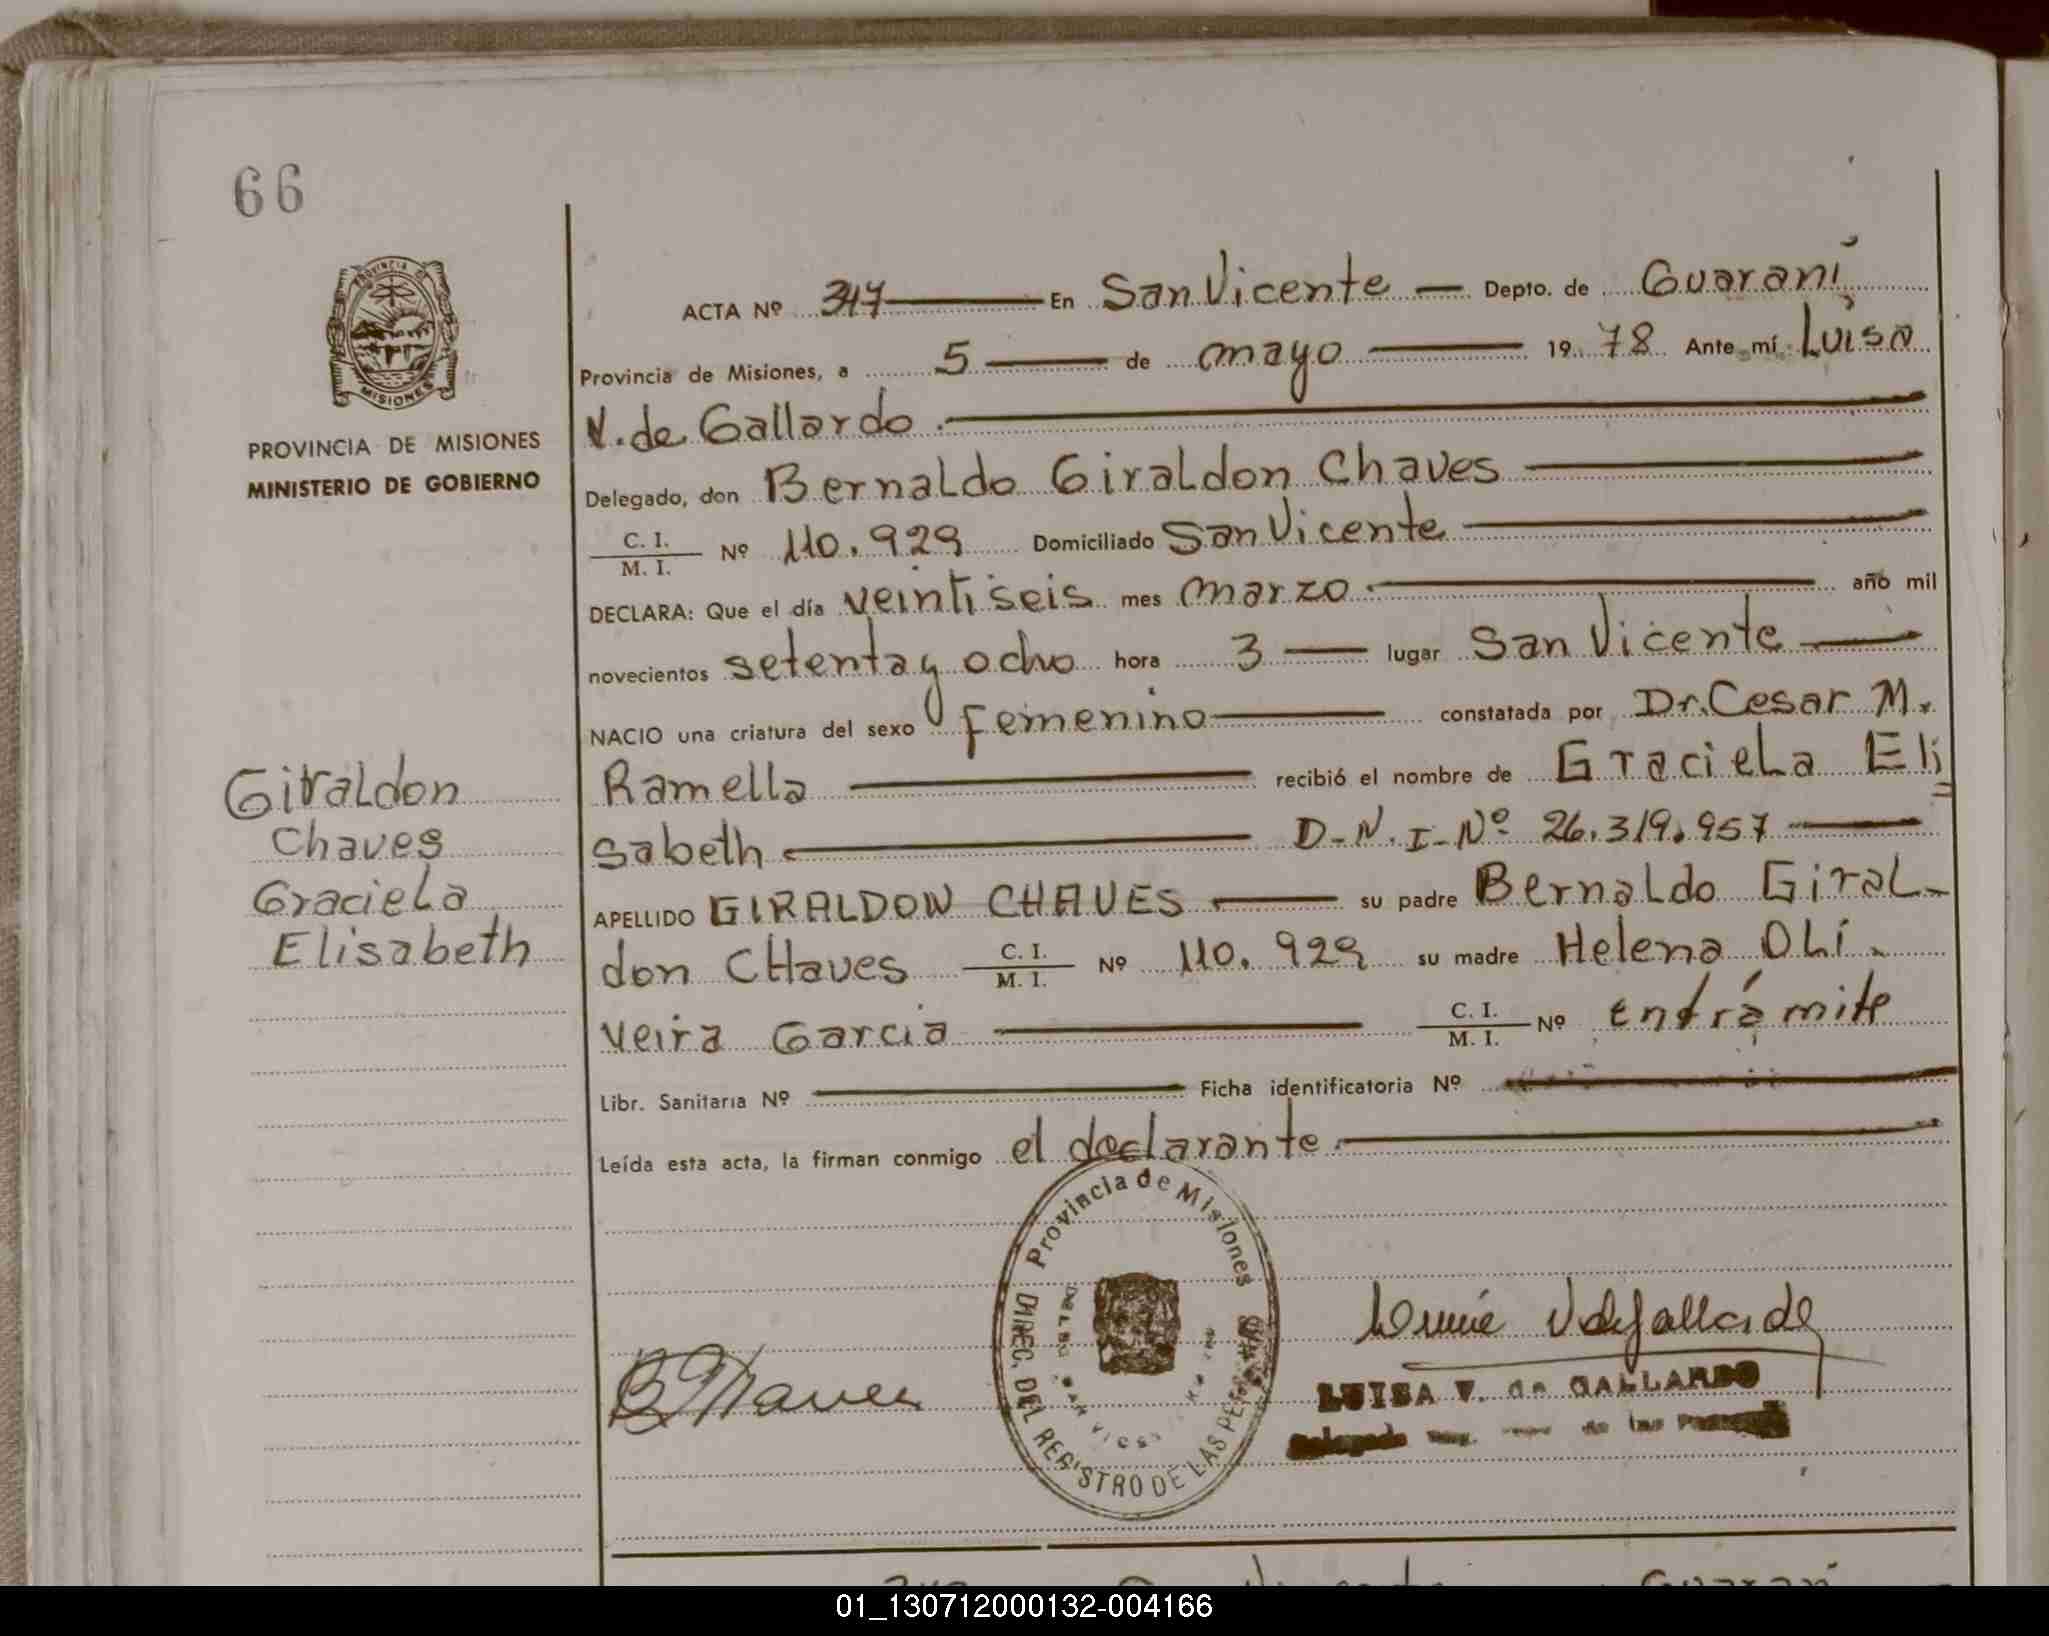 66
PROVINCIA DE MISIONES
PROVINCIA DE MISIONES
MINISTERIO DE GOBIERNO
Giraldon
Chaves
Graciela
Elisabeth
ACTA Nº 347 En San Vicente Depto. de Guaraní
Provincia de Misiones, a 5 de mayo 1978 Ante mí Luisa
V. de Gallardo
Delegado, don Bernaldo Giraldon Chaves
C. I.
M. I. Nº 110.929 Domiciliado San Vicente
DECLARA: Que el día veintiseis mes marzo año mil
novecientos setenta y ocho hora 3 lugar San Vicente
NACIO una criatura del sexo femenino constatada por Dr. Cesar M.
Ramella recibió el nombre de Graciela Eli
sabeth D-N.I-Nº 26.319.957
APELLIDO GIRALDON CHAVES su padre Bernaldo Giral-
don CHaves C. I.
M. I. Nº 110.929 su madre Helena Olí-
veira Garcia C. I.
M. I. Nº entrámite
Libr. Sanitaria Nº Ficha identificatoria Nº
Leída esta acta, la firman conmigo el declarante
Provincia de Misiones
DIREC. DEL REGISTRO DE LAS PERSONAS
B Chaves
Luisa V de Gallardo
LUISA V. de GALLARDO
Delegada de las
01_130712000132-004166